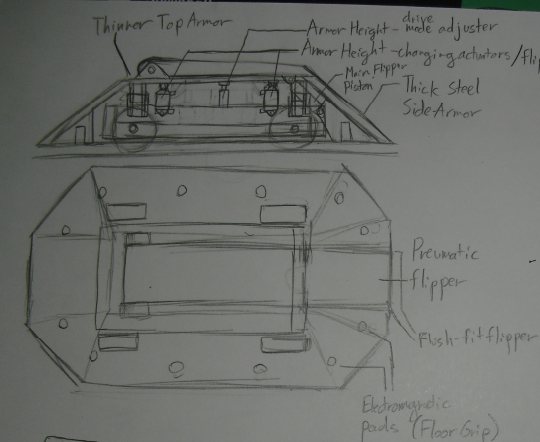 Thinner Top Armor
Armor Height-drive mode adjuster
Armor Height-changing actuators/flip
Main Flipper
Piston
Thick Steel
Side Armor
Pneumatic
flipper
Flush-fit flipper
Electromagnetic
pads (Floor Grip)